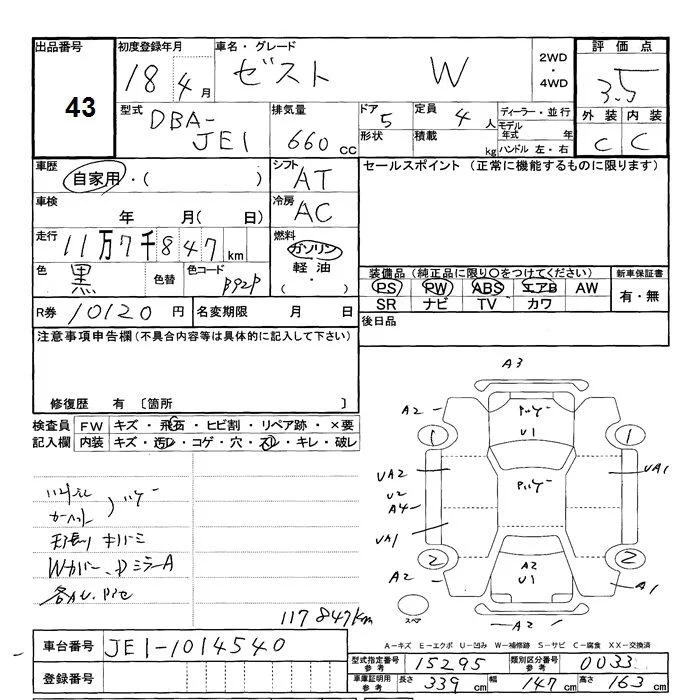 出品番号 初度登録年月 車名・グレード 評価点
43
18 4月 ゼスト W 2WD・4WD 3.5
型式 排気量 ドア 定員 ディーラー・並行 外装 内装
DBA-JE1 660cc 5 4人 モデル年式 年 C C
形状 積載 kg ハンドル 左・右
車歴 シフト セールスポイント (正常に機能するものに限ります)
自家用・( ) AT
車検 冷房
年 月( 日) AC
走行 燃料
11万7千847km ガソリン
色 色替 色コード 軽油 装備品(純正品に限り○をつけてください) 新車保証書
黒 B92P ・( ) PS PW ABS エアB AW 有・無
SR ナビ TV カワ
R券 10120円 名変期限 月 日 後日品
注意事項申告欄(不具合内容等は具体的に記入して下さい)
修復歴 有 〔箇所 〕
検査員 FW キズ・飛石・ヒビ割・リペア跡・×要
記入欄 内装 キズ・汚レ・コゲ・穴・スレ・キレ・破レ
A3
A2
U1
1 1
UA2 UA1
U2
A4
UA1
2 2
A2 A2 A1
U1
スペア
A2
117847km
車台番号 JE1-1014540
登録番号
A-キズ E-エクボ U-凹み W-補修跡 S-サビ C-腐食 XX-交換済
型式指定番号 参考 15295 類別区分番号 参考 0033
車庫証明用 参考 長さ 339cm 幅 147cm 高さ 163cm